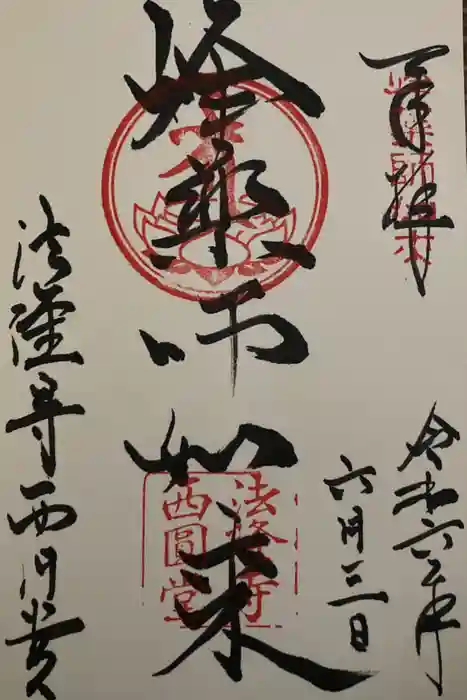 奉拝
令和六年
六月三日
峰薬师如来
法隆寺
西圓堂
法隆寺西円堂